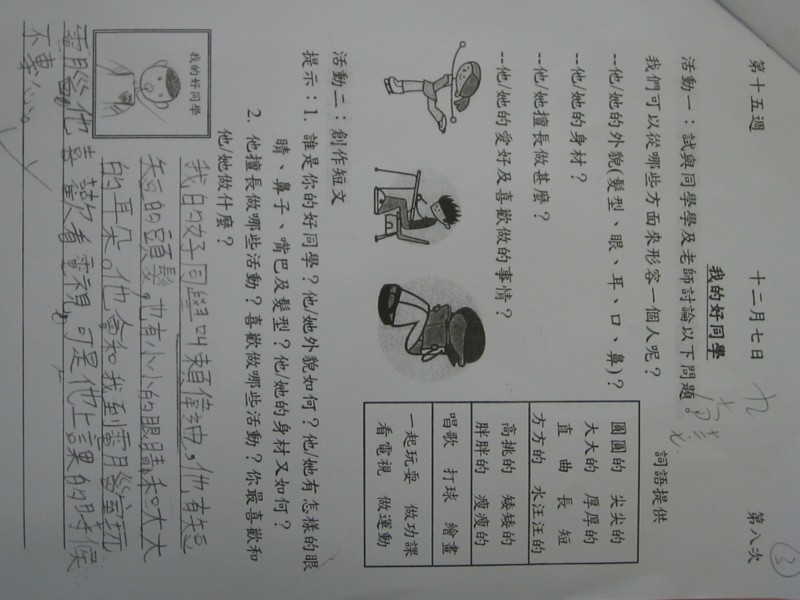 第十五週 十二月七日 第八次
我的好同學
活動一：試與同學學及老師討論以下問題
我們可以從哪些方面來形容一個人呢？
--他/她的外貌(髮型、眼、耳、口、鼻)？
--他/她的身材？
--他/她擅長做甚麼？
--他/她的愛好及喜歡做的事情？
詞語提供
圓圓的 尖尖的
大大的 厚厚的
直 曲 長 短
方方的 水汪汪的
高挑的 矮矮的
胖胖的 瘦瘦的
唱歌 打球 繪畫
一起玩耍 做功課
看電視 做運動
活動二：創作短文
提示：1. 誰是你的好同學？他/她外貌如何？他/她有怎樣的眼
睛、鼻子、嘴巴及髮型？他/她的身材又如何？
2. 他擅長做哪些活動？喜歡做哪些活動？你最喜歡和
他/她做什麼？
我的好同學
我的好同學叫賴偉紳。他有短
短的頭髮，也有小小的眼睛和大大
的耳朵。他會和我到電腦室玩
電腦。他喜歡看電視，可是他上課的時候
不專心。